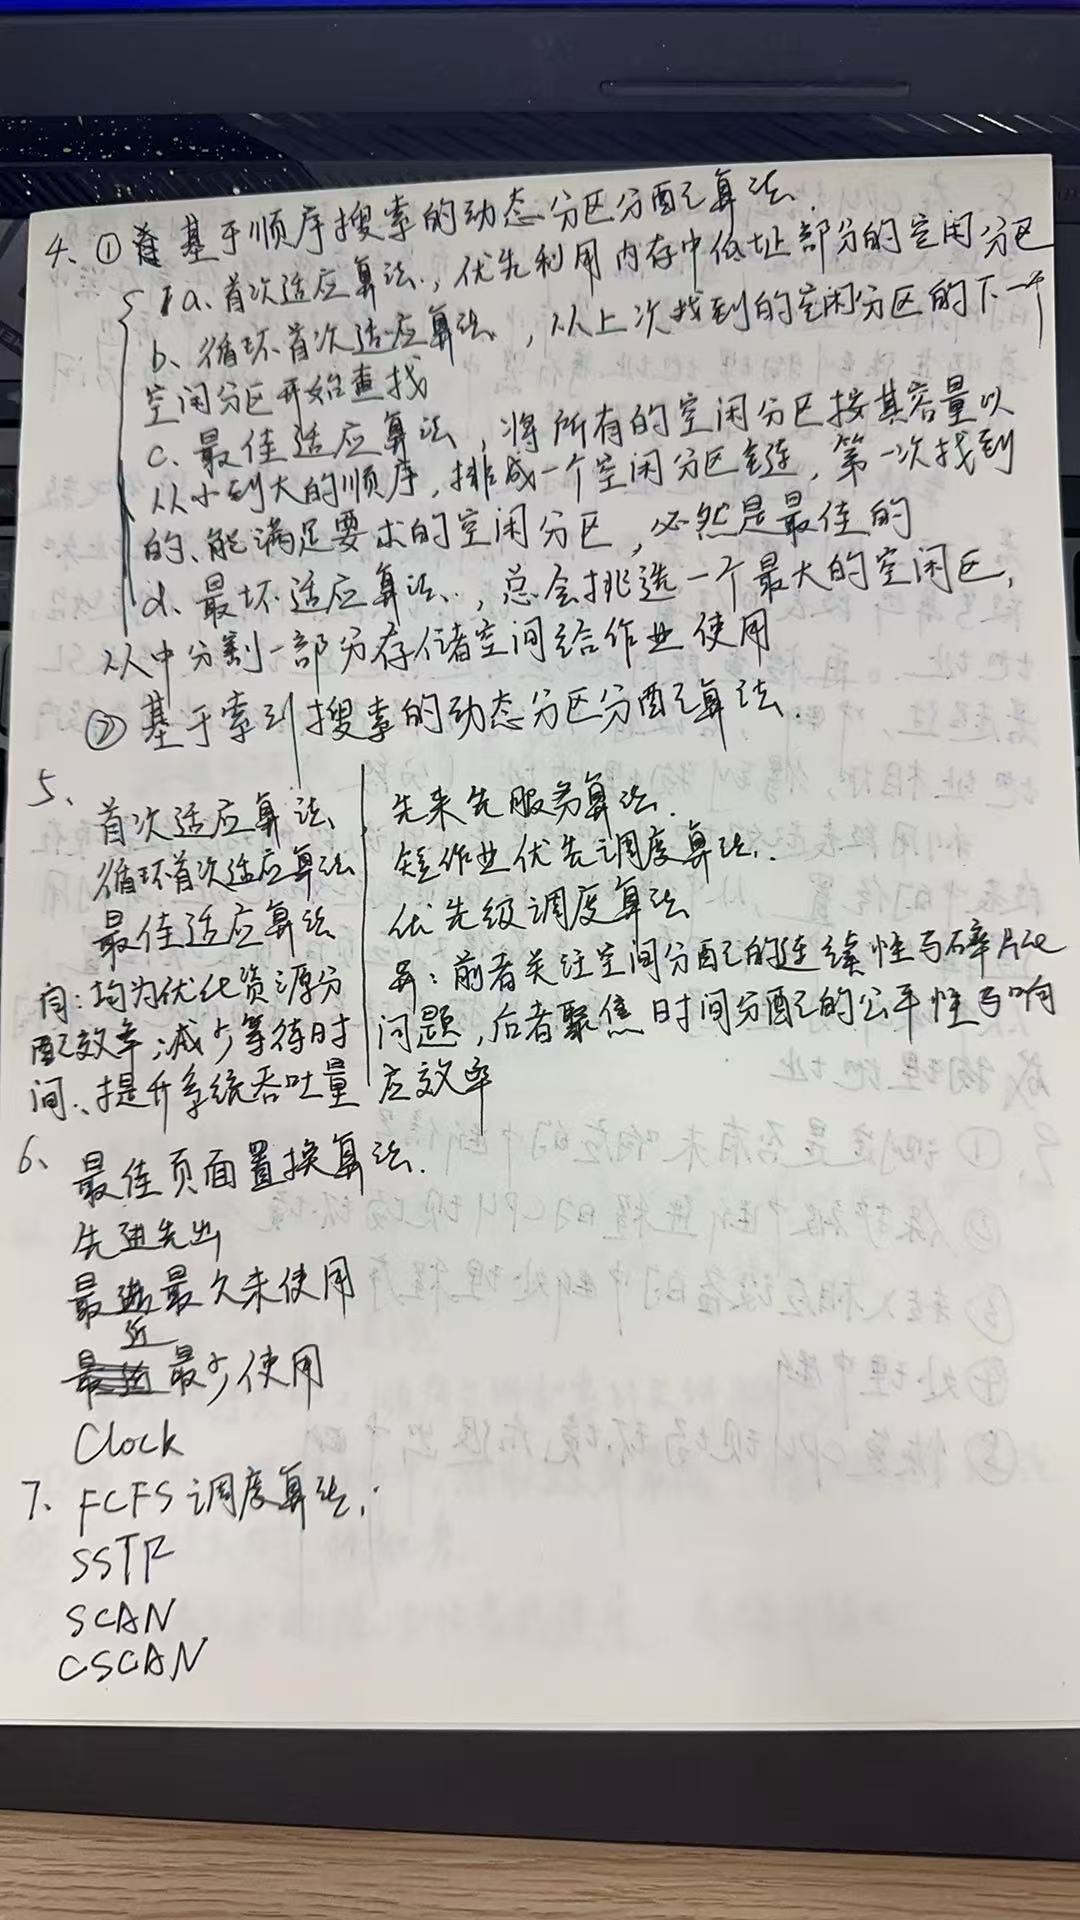 4、① 基于顺序搜索的动态分区分配算法.
a、首次适应算法,优先利用内存中低址部分的空闲分区
b、循环首次适应算法,从上次找到的空闲分区的下一个
空闲分区开始查找
c、最佳适应算法,将所有的空闲分区按其容量以
从小到大的顺序,排成一个空闲分区链,第一次找到
的、能满足要求的空闲分区,必然是最佳的
d、最坏适应算法,总会挑选一个最大的空闲区,
从中分割一部分存储空间给作业使用
② 基于索引搜索的动态分区分配算法.
5、
首次适应算法
循环首次适应算法
最佳适应算法
同:均为优化资源分
配效率,减少等待时
间、提升系统吞吐量
先来先服务算法.
短作业优先调度算法.
优先级调度算法
异:前者关注空间分配的连续性与碎片化
问题,后者聚焦时间分配的公平性与响
应效率
6、最佳页面置换算法.
先进先出
最近最久未使用
最少使用
Clock
7、FCFS调度算法.
SSTF
SCAN
CSCAN